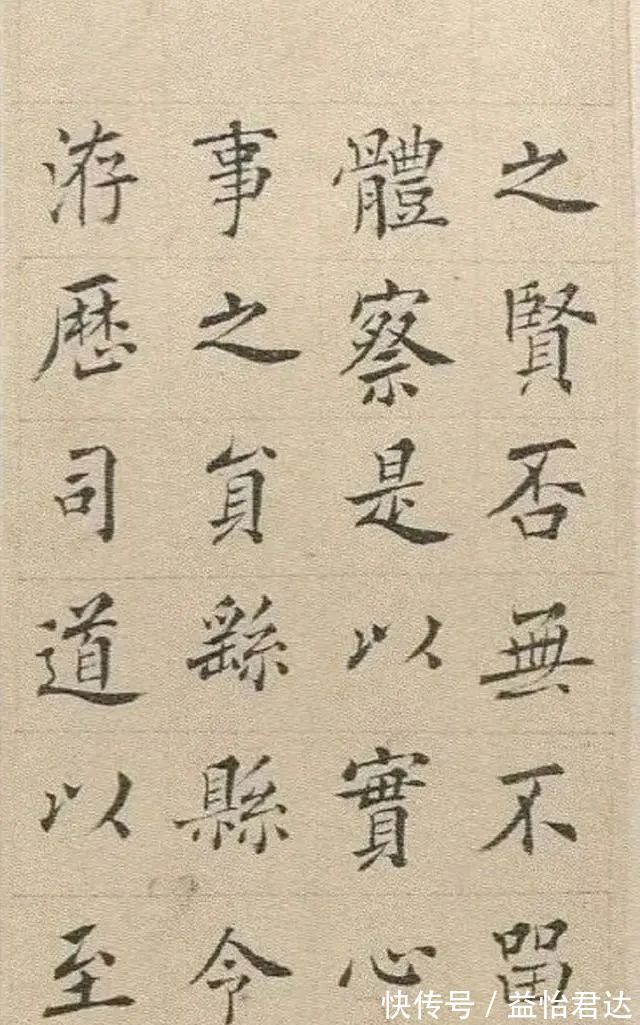 之賢否無不留
體察是以實心
事之員繇縣令
洊歷司道以至
快传号/益怡君达